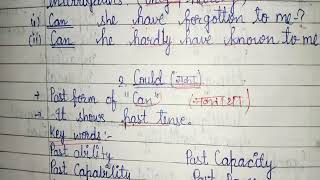 i) Can she have forgotten to me?
(ii) Can he hardly have known to me
2. Could (सका)
→ Past form of "Can" (सकता था)
→ It shows past tense.
Key words:-
Past ability Past Capacity
Past Capability Past